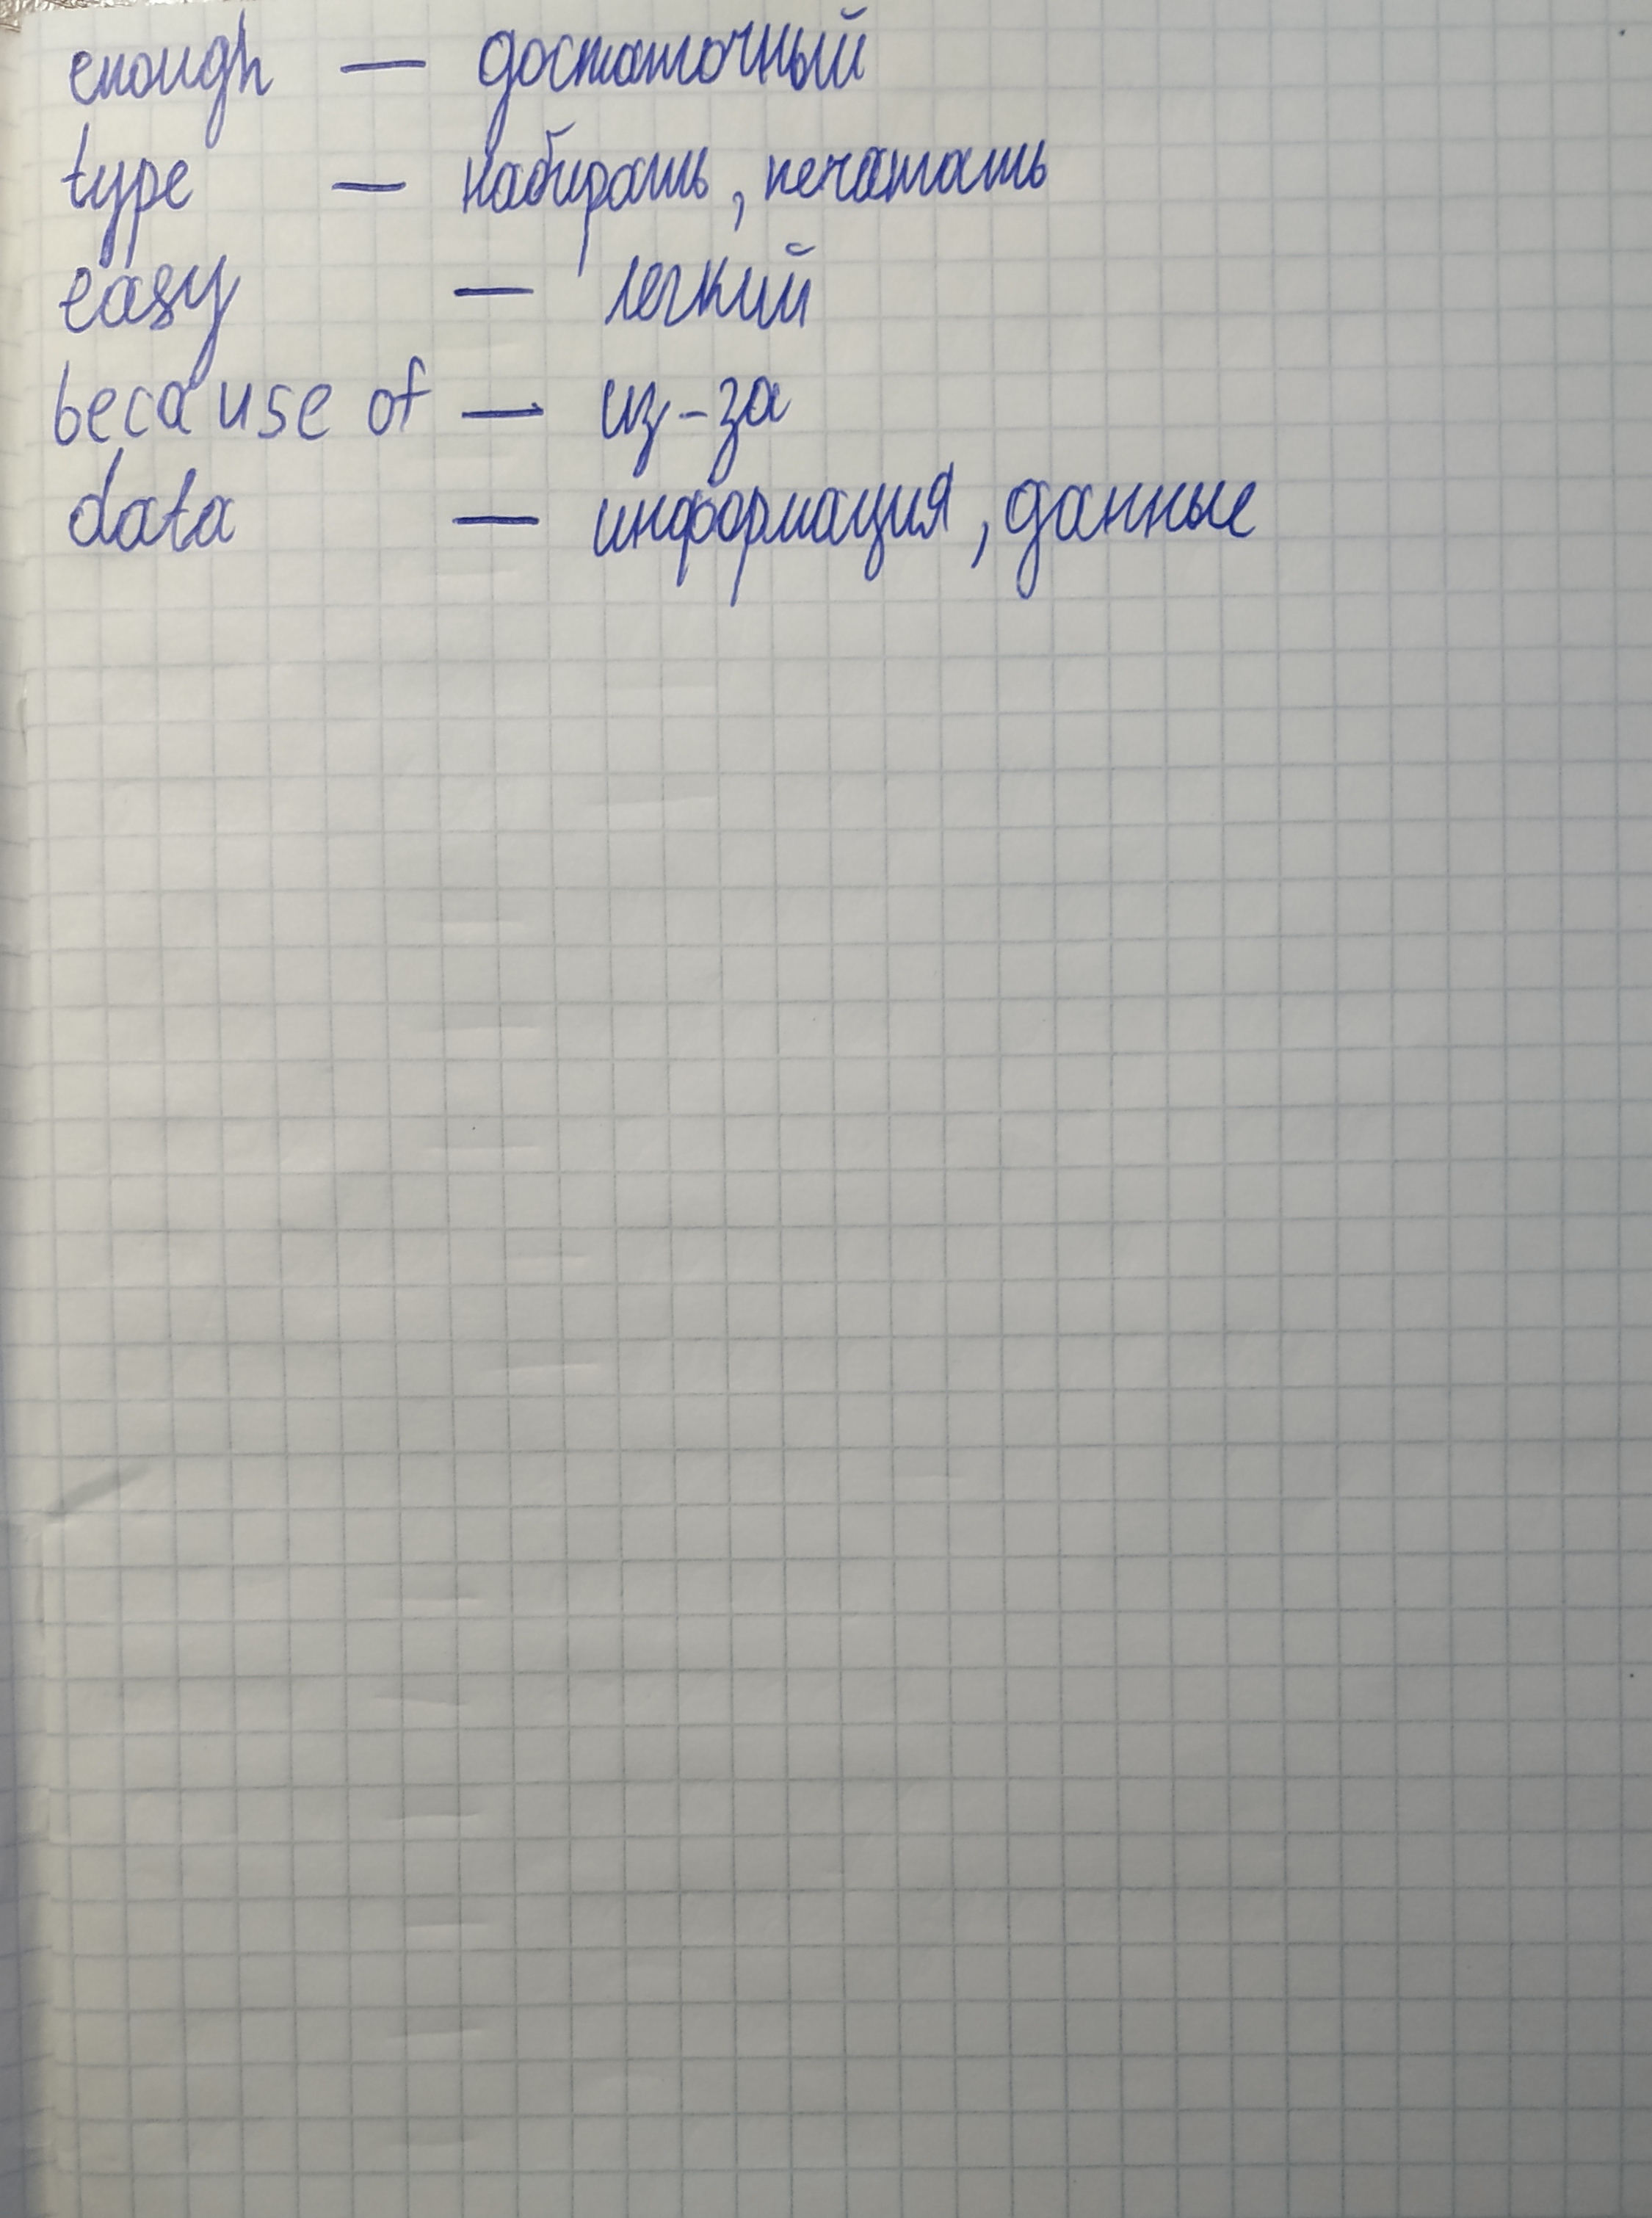 enough — достаточный
type — набирать, печатать
easy — легкий
because of — из-за
data — информация, данные